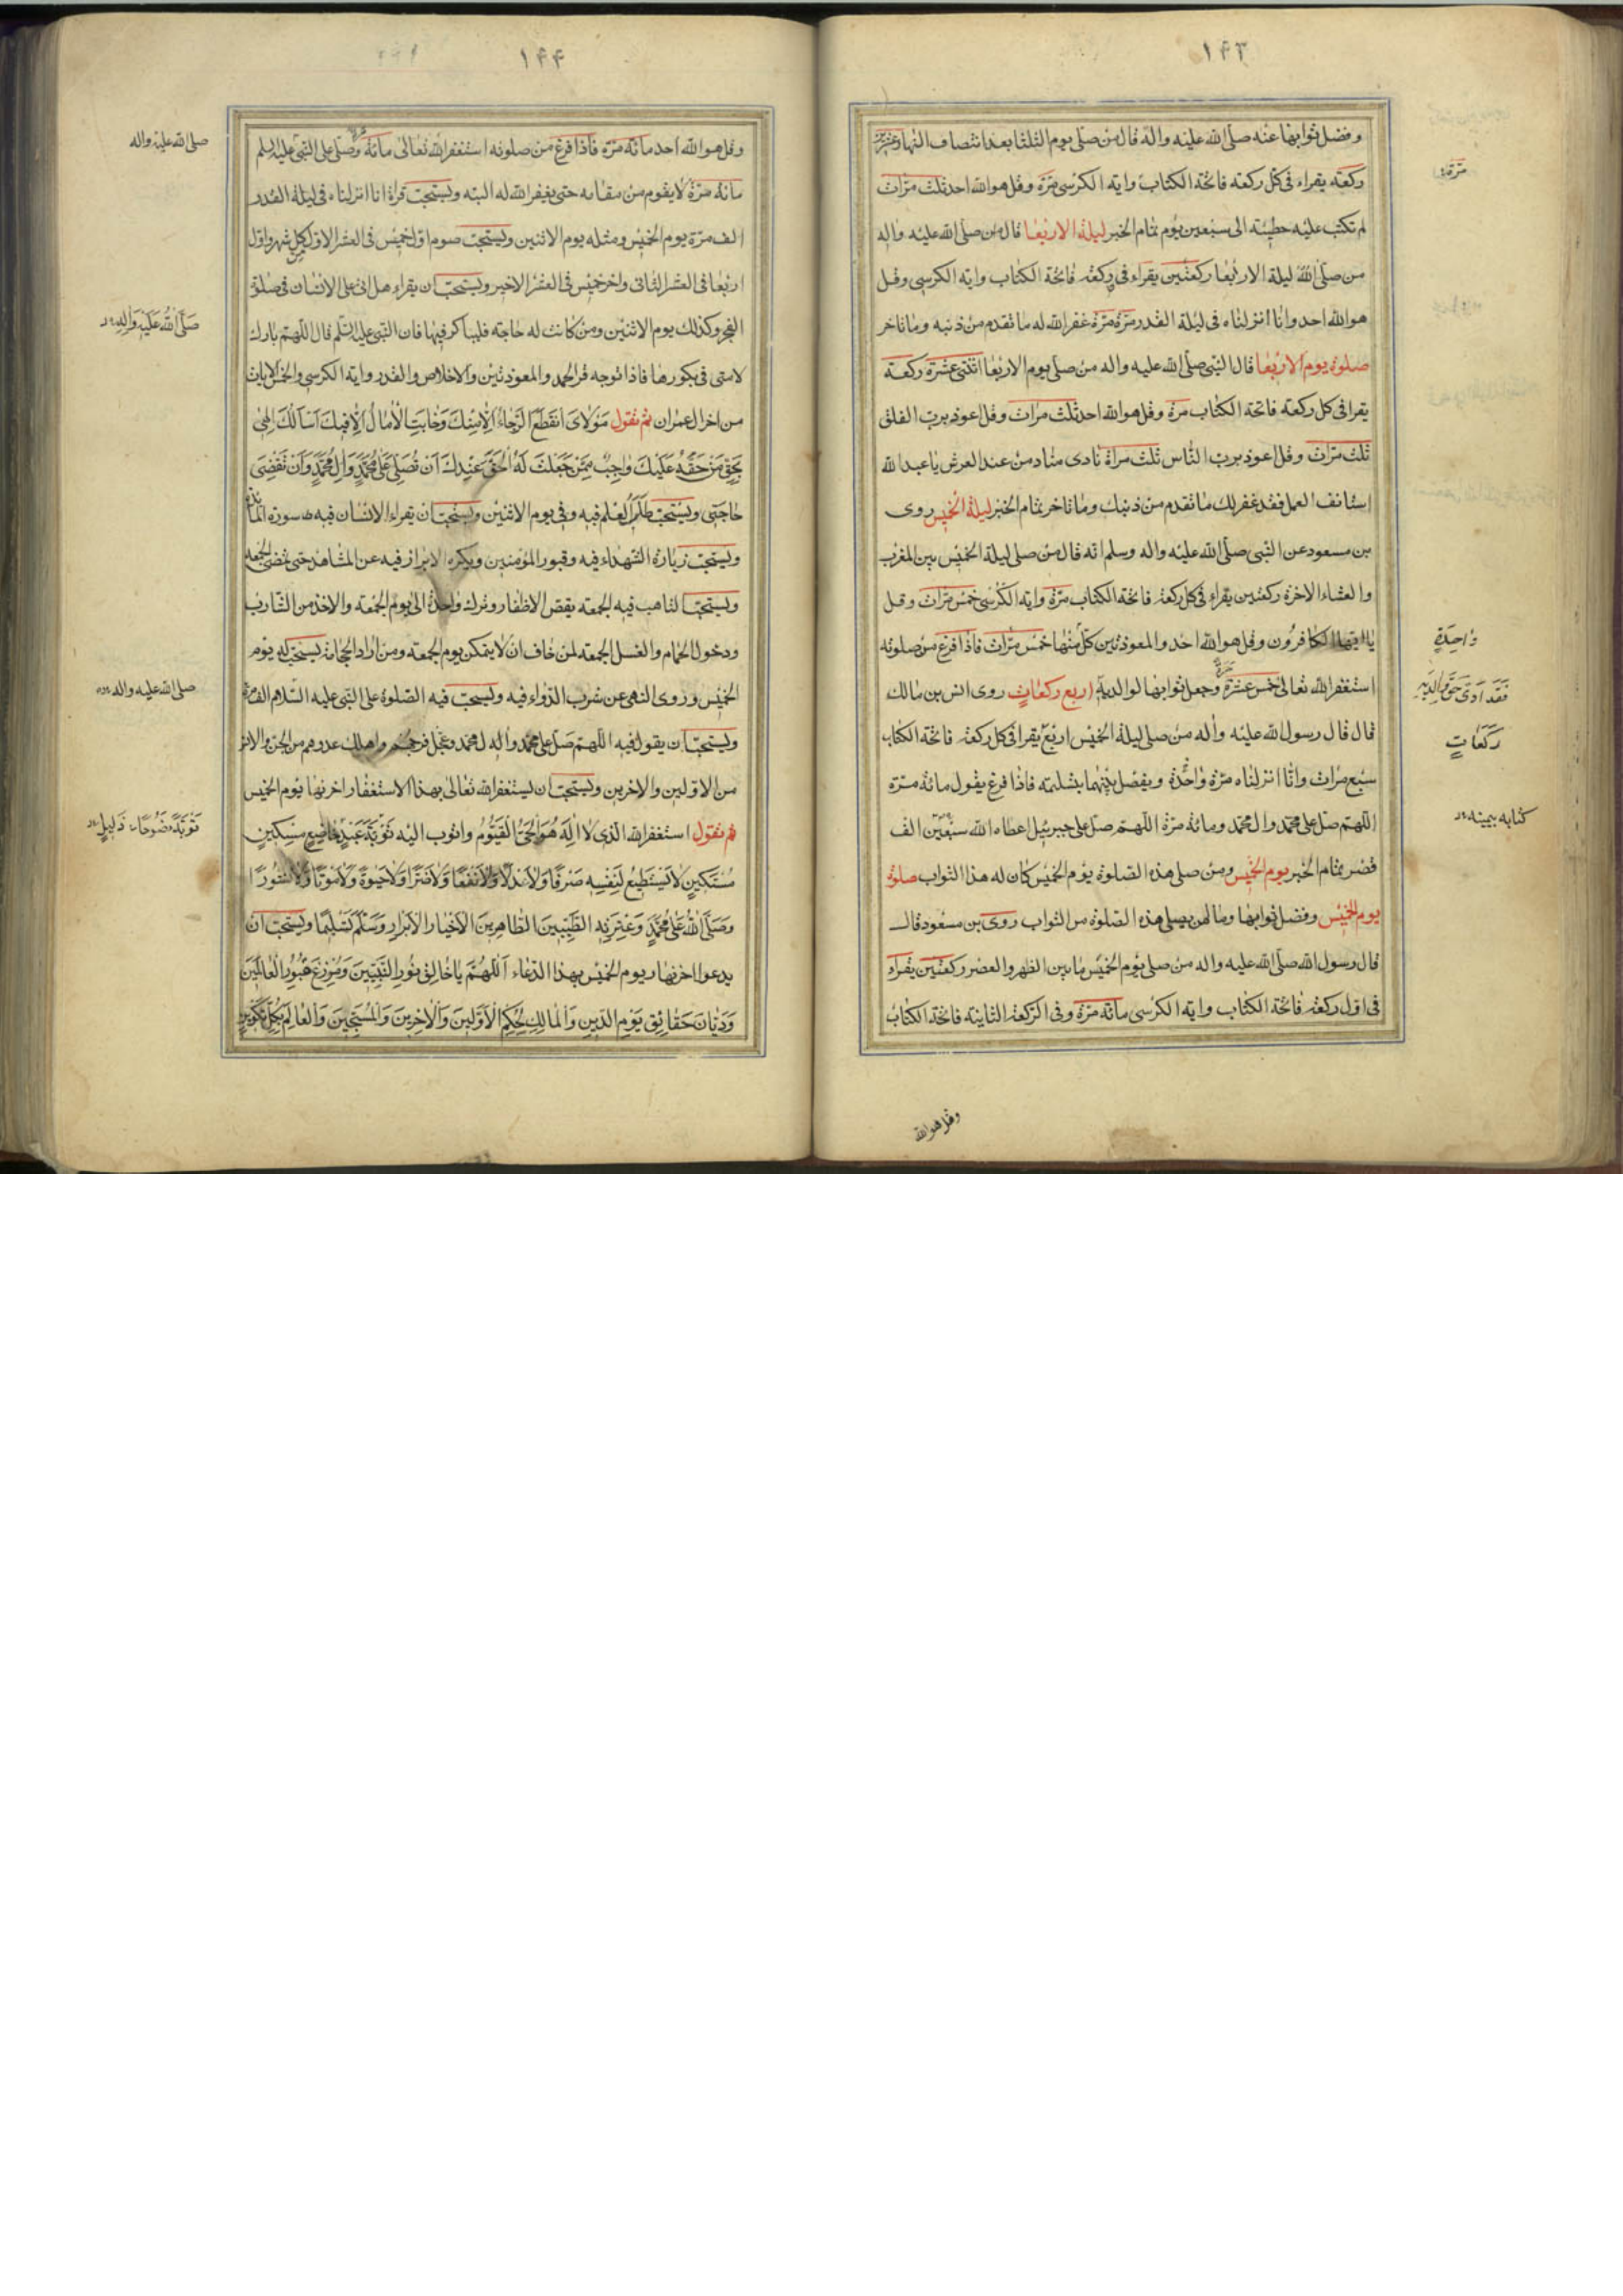 ۱۴۳
وفضل ثوابها عنه صلى الله عليه واله قال من صلى يوم الثلثا بعد انتصاف النهار عشرين
ركعة يقراء فى كل ركعة فاتحة الكتاب واية الكرسى مرة وقل هو الله احد ثلث مرات
لم تكتب عليه خطيئة الى سبعين يوم تمام الخبر ليلة الاربعا قال من صلى الله عليه واله
من صلى الله ليلة الاربعا ركعتين يقراء فى ركعة فاتحة الكتاب واية الكرسى وقل
هو الله احد وانا انزلناه فى ليلة القدر مرة مرة غفر الله له ما تقدم من ذنبه وما تاخر
صلوة يوم الاربعا قال النبى صلى الله عليه واله من صلى يوم الاربعا اثنتى عشرة ركعة
يقرا فى كل ركعة فاتحة الكتاب مرة وقل هو الله احد ثلث مرات وقل اعوذ برب الفلق
ثلث مرات وقل اعوذ برب الناس ثلث مراة نادى مناد من عند العرش يا عبد الله
استانف العمل فقد غفر لك ما تقدم من ذنبك وما تاخر تمام الخبر ليلة الخميس روى
بن مسعود عن النبى صلى الله عليه واله وسلم انه قال من صلى ليلة الخميس بين المغرب
والعشاء الاخرة ركعتين يقراء فى كل ركعة فاتحة الكتاب مرة واية الكرسى خمس مرات وقل
يا ايها الكافرون وقل هو الله احد والمعوذتين كل منها خمس مرات فاذا فرغ من صلوته
استغفر الله تعالى خمس عشرة مرة وجعل ثوابها لوالديه اربع ركعات روى انس بن مالك
قال قال رسول الله عليه واله من صلى ليلة الخميس اربع يقرا فى كل ركعة فاتحة الكتاب
سبع مرات وانا انزلناه مرة واحدة ويفصل بينهما بتسليمة فاذا فرغ يقول مائة مرة
اللهم صل على محمد وال محمد ومائة مرة اللهم صل على جبرئيل اعطاه الله سبعين الف
قصر بتمام الخبر يوم الخميس ومن صلى هذه الصلوة يوم الخميس كان له هذا الثواب صلوة
يوم الخميس وفضل ثوابها وما لمن يصلى هذه الصلوة من الثواب روى بن مسعود قال
قال رسول الله صلى الله عليه واله من صلى يوم الخميس ما بين الظهر والعصر ركعتين يقراء
فى اول ركعة فاتحة الكتاب واية الكرسى مائة مرة وفى الركعة الثانية فاتحة الكتاب
وقل هو الله
مرة
واحدة
فقد ادى حق والديه
ركعات
كتابه بيمينه
۱۴۴
وقل هو الله احد مائة مرة فاذا فرغ من صلوته استغفر الله تعالى مائة مرة وصلى على النبى عليه السلم
مائة مرة لا يقوم من مقامه حتى يغفر الله له البتة ويستحب قراة انا انزلناه فى ليلة القدر
الف مرة يوم الخميس ومثله يوم الاثنين ويستحب صوم اول خميس فى العشر الاول لكل شهر واول
اربعا فى العشر الثانى واخر خميس فى العشر الاخير ويستحب ان يقراء هل اتى على الانسان فى صلوة
الفجر وكذلك يوم الاثنين ومن كانت له حاجة فليباكر فيها فان النبى عليه السلم قال اللهم بارك
لامتى فى بكورها فاذا توجه قرا الحمد والمعوذتين والاخلاص والقدر واية الكرسى والخمس الايات
من اخر ال عمران ثم تقول مَوْلاىَ انْقَطَعَ الرَّجاءُ اِلّا مِنْكَ وَخابَتِ الْاٰمالُ اِلّا فيكَ اَسْاَلُكَ اِلٰهى
بِحَقِّ مَنْ حَقُّهُ عَلَيْكَ واجِبٌ مِمَّنْ جَعَلْتَ لَهُ الْحَقَّ عِنْدَكَ اَنْ تُصَلِّىَ عَلى مُحَمَّدٍ وَالِ مُحَمَّدٍ وَاَنْ تَقْضِىَ
حاجَتى ويستحب طلب العلم فيه وفى يوم الاثنين ويستحب ان يقراء الانسان فيه سورة المائدة
ويستحب زيارة الشهداء فيه وقبور المؤمنين ويكره البراز فيه عن المشاهد حتى تمضى الجمعة
ويستحب التاهب فيه للجمعة بقص الاظفار وترك واحدة الى يوم الجمعة والاخذ من الشارب
ودخول الحمام والغسل للجمعة لمن خاف ان لا يتمكن يوم الجمعة ومن اراد الحجامة يستحب له يوم
الخميس وروى النهى عن شرب الدواء فيه ويستحب فيه الصلوة على النبى عليه السلام الف مرة
ويستحب ان يقول فيه اللهم صل على محمد وال محمد وعجل فرجهم واهلك عدوهم من الجن والانس
من الاولين والاخرين ويستحب ان يستغفر الله تعالى بهذا الاستغفار اخر نهار يوم الخميس
ثم تقول استغفر الله الذى لا اله هُوَ الْحَىُّ الْقَيُّومُ واتوب اليه تَوْبَةَ عَبْدٍ خاضِعٍ مِسْكينٍ
مُسْتَكينٍ لا يَسْتَطيعُ لِنَفْسِهِ صَرْفًا وَلا عَدْلًا وَلا نَفْعًا وَلا ضَرًّا وَلا حَيوةً وَلا مَوْتًا وَلا نُشُورًا
وَصَلَّى اللهُ عَلى مُحَمَّدٍ وَعِتْرَتِهِ الطَّيِّبينَ الطّاهِرينَ الْاَخْيارِ الْاَبْرارِ وَسَلَّمَ تَسْليمًا ويستحب ان
يدعوا اخر نهار يوم الخميس بهذا الدعاء اَللّهُمَّ يا خالِقَ نُورِ النَّبِيّينَ وَمُوزِعَ قُبُورِ الْعالَمينَ
وَدَيّانَ حَقائِقِ يَوْمِ الدّينِ وَالْمالِكَ لِحُكْمِ الْاَوَّلينَ وَالْاٰخِرينَ وَالْمُسَبِّحينَ وَالْعالِمَ بِكُلِّ تَكْوينٍ
صلى الله عليه واله
صَلَّى اللهُ عَلَيْهِ وَالِهِ
صلى الله عليه واله
تَوْبَةً نَصُوحًا ذَليلٍ